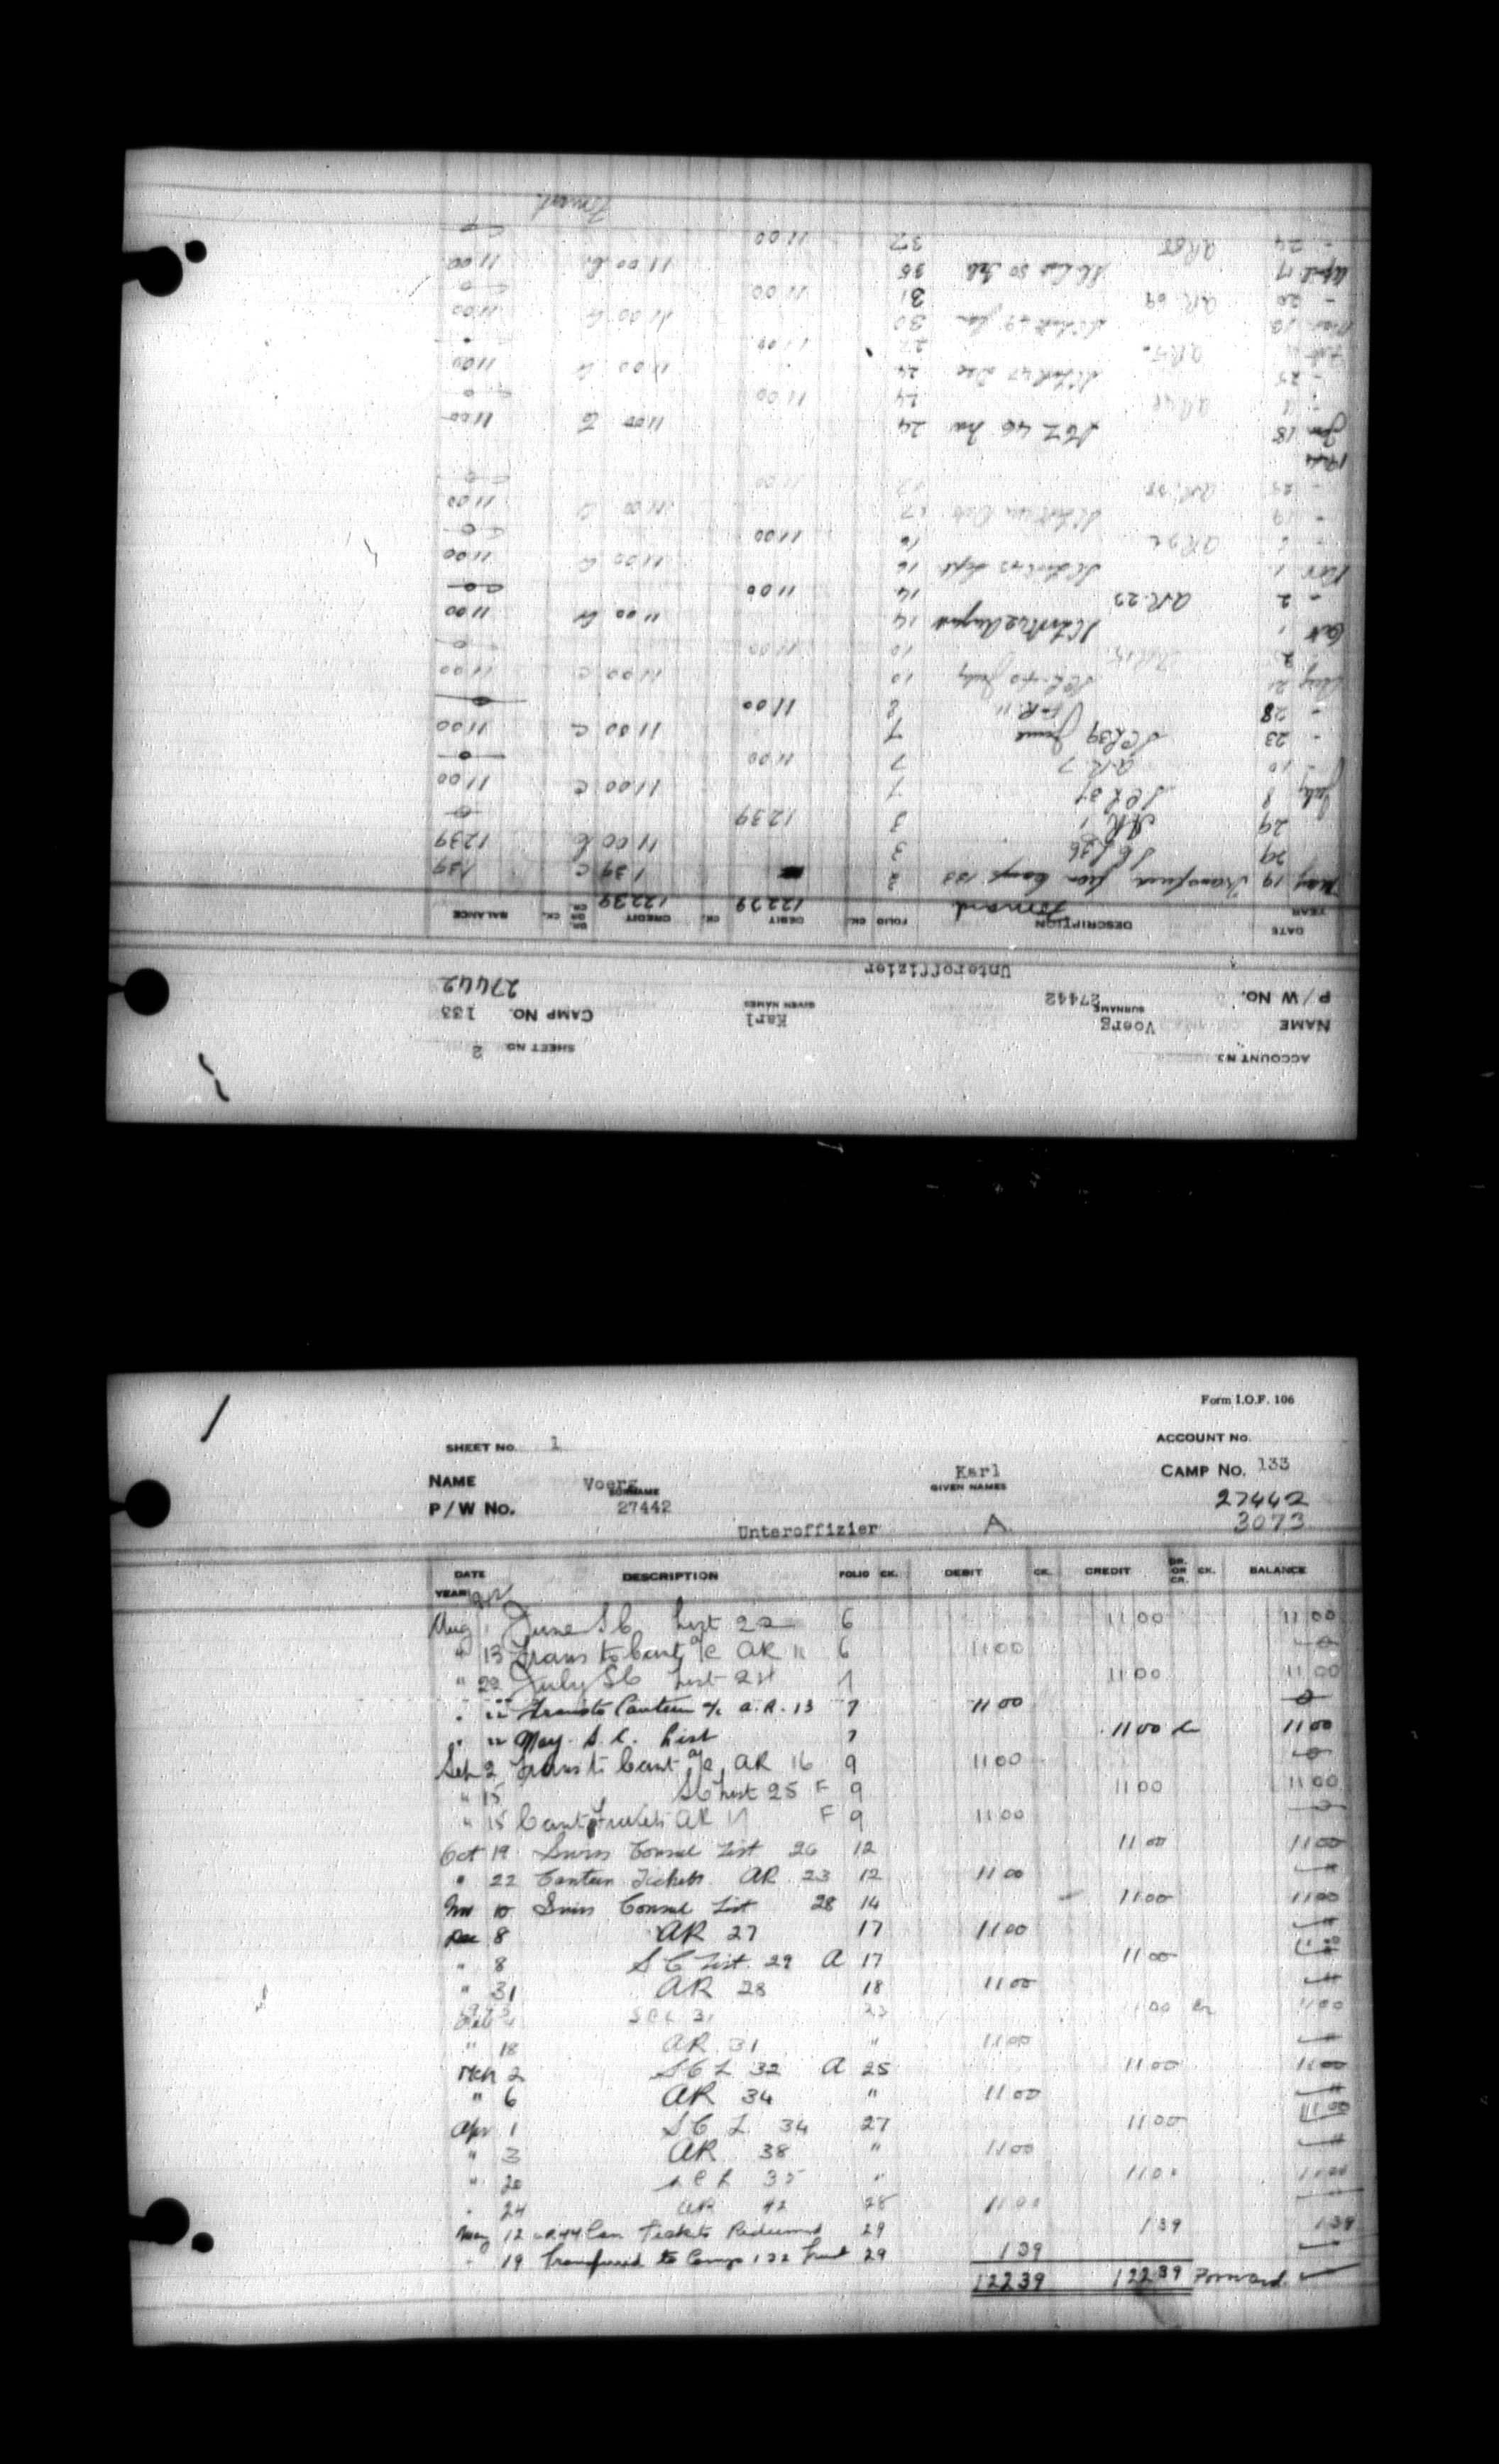 ACCOUNT No
SHEET NO. 2
NAME Voerg Karl CAMP NO. 133
SURNAME GIVEN NAMES
P/W NO. 27442 27442
Unteroffizier
DATE DESCRIPTION FOLIO CK. DEBIT CK. CREDIT DR. OR CR. CK. BALANCE
YEAR Forward. 12239 12239
May 19 Transferred from Camp 133 2 1 39 C 1 39
29 SCL 36 3 11 00 C 12 39
29 A.R. 1 3 12 39 0
July 8 SCL 37 7 11 00 C 11 00
- 10 A.R. 7 7 11 00 0
- 23 SCL 39 June 7 11 00 C 11 00
- 28 A.R. 11 8 11 00 0
Aug 21 SCL 40 July 10 11 00 C 11 00
10 11 00 0
Oct 1 SC List 42 August 14 11 00 Cr 11 00
- 2 A.R. 23 14 11 00 0
Nov 1 SC List 43 Sept 16 11 00 Cr 11 00
- 2 A.R. 16 11 00 0
- 19 SC List Oct 17 11 00 Cr 11 00
- 11 00 0
Jan 18 SCL 46 Nov 24 11 00 C 11 00
- A.R. 24 11 00 0
- 25 SC List 47 Dec 11 00 C 11 00
Feb A.R. 27 11 00
Mar 13 SC List 49 Jan 30 11 00 Cr 11 00
- 20 A.R. 31 11 00 0
April 17 SC List 50 Feb 35 11 00 Cr 11 00
- 24 A.R. 37 11 00
Forward.
Form I.O.F. 106
SHEET NO. 1 ACCOUNT NO.
NAME Voerg Karl CAMP NO. 133
SURNAME GIVEN NAMES
P/W NO. 27442 27442
Unteroffizier A 3073
DATE DESCRIPTION FOLIO CK. DEBIT CK. CREDIT DR. OR CR. CK. BALANCE
YEAR
Aug 1 June SC List 22 6 11 00 11 00
" 13 Trans to Cant a/c AR 11 6 11 00 0
" 22 July SC List 24 7 11 00 11 00
" " Trans to Canteen a/c A.R. 13 7 11 00 0
" " May S.C. List 7 11 00 Cr 11 00
Sep 2 Trans to Cant a/c AR 16 9 11 00 0
" 15 SC List 25 F 9 11 00 11 00
" 15 Cant Tickets AR 17 F 9 11 00 0
Oct 19 Swiss Consul List 26 12 11 00 11 00
" 22 Canteen Tickets AR 23 12 11 00
Nov 10 Swiss Consul List 28 14 11 00 11 00
Dec 8 AR 27 17 11 00
" 8 SC List 29 A 17 11 00
" 31 AR 28 18 11 00
Feb SCL 31 11 00 Cr 11 00
" 18 AR 31 " 11 00
Mch 2 SCL 32 A 25 11 00 11 00
" 6 AR 34 " 11 00
Apr 1 SCL 34 27 11 00 11 00
" 3 AR 38 " 11 00
" 20 SCL 35 " 11 00 11 00
" 24 AR 42 28 11 00
May 12 AR 44 Can Tickets Redeemed 29 1 39 1 39
19 Transferred to Camp 132 Trust 29 1 39
122 39 122 39 Forward.